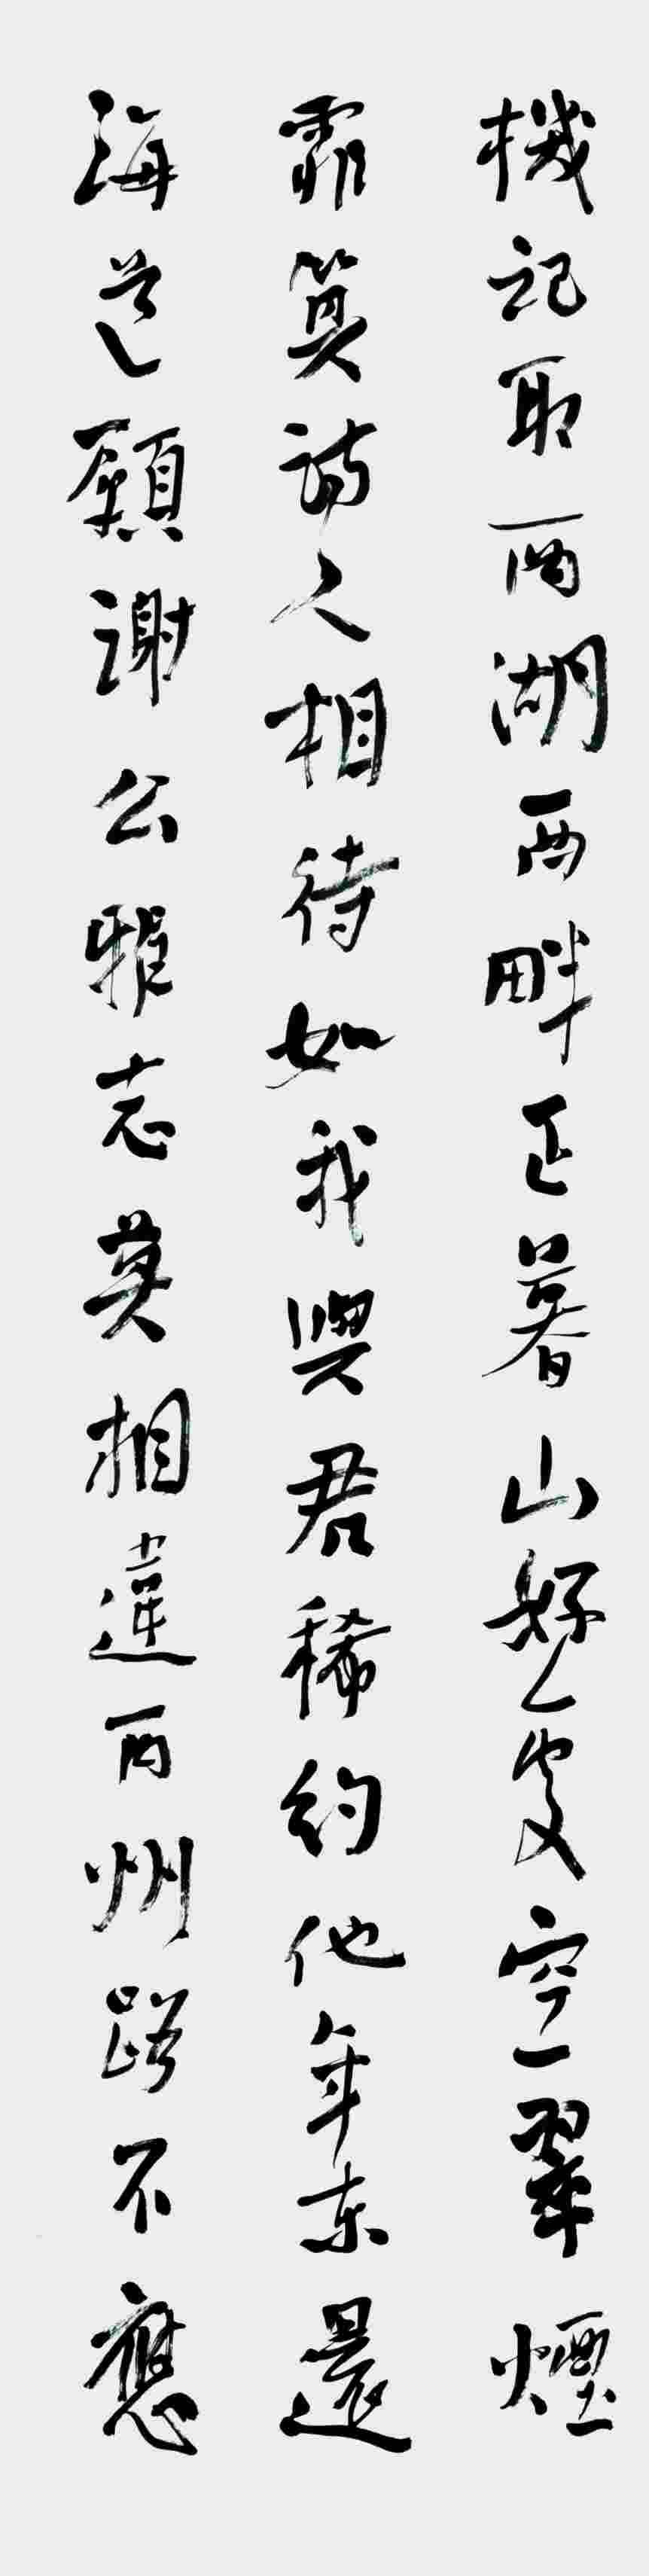 機記取西湖西畔正暮山好處空翠煙
霏算詩人相待如我與君稀約他年東還
海道願謝公雅志莫相違西州路不應